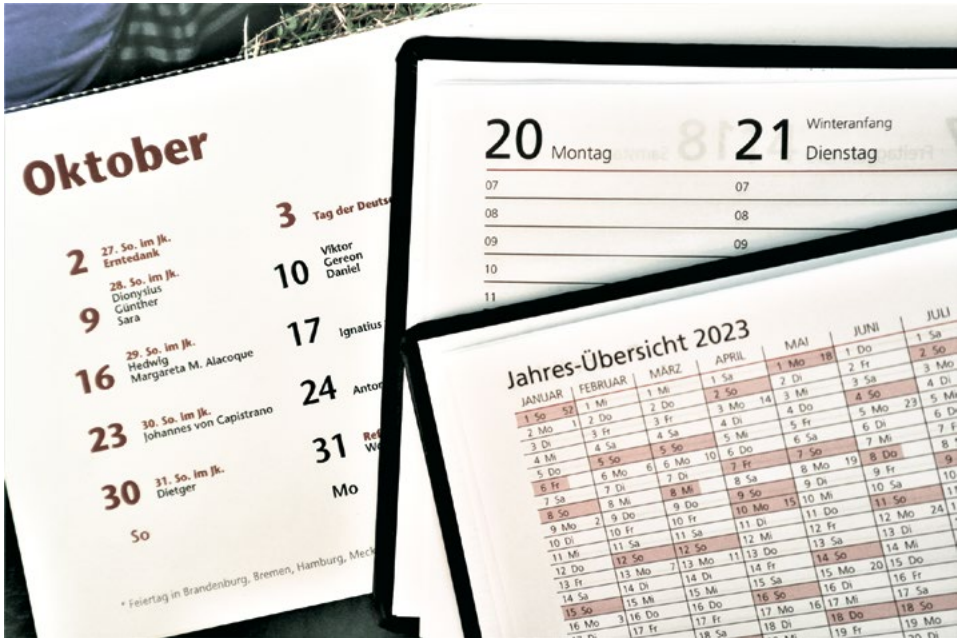 Oktober
2 27. So. im Jk.
Erntedank
9 28. So. im Jk.
Dionysius
Günther
Sara
16 29. So. im Jk.
Hedwig
Margareta M. Alacoque
23 30. So. im Jk.
Johannes von Capistrano
30 31. So. im Jk.
Dietger
So
3 Tag der Deuts
10 Viktor
Gereon
Daniel
17 Ignatius
24 Anton
31 Ref
Mo
* Feiertag in Brandenburg, Bremen, Hamburg, Meck
20 Montag
07
08
09
10
11
21 Winteranfang
Dienstag
07
08
09
Jahres-Übersicht 2023
JANUAR FEBRUAR MÄRZ APRIL MAI JUNI JULI
1 So 52 1 Mi 1 Mi 1 Sa 1 Mo 18 1 Do 1 Sa
2 Mo 1 2 Do 2 Do 2 So 2 Di 2 Fr 2 So
3 Di 3 Fr 3 Fr 3 Mo 14 3 Mi 3 Sa 3 Mo
4 Mi 4 Sa 4 Sa 4 Di 4 Do 4 So 4 Di
5 Do 5 So 5 So 5 Mi 5 Fr 5 Mo 23 5 Mi
6 Fr 6 Mo 6 6 Mo 10 6 Do 6 Sa 6 Di 6 D
7 Sa 7 Di 7 Di 7 Fr 7 So 7 Mi 7 F
8 So 8 Mi 8 Mi 8 Sa 8 Mo 19 8 Do 8
9 Mo 2 9 Do 9 Do 9 So 9 Di 9 Fr 9
10 Di 10 Fr 10 Fr 10 Mo 15 10 Mi 10 Sa 10
11 Mi 11 Sa 11 Sa 11 Di 11 Do 11 So
12 Do 12 So 12 So 12 Mi 12 Fr 12 Mo 24
13 Fr 13 Mo 7 13 Mo 11 13 Do 13 Sa 13 Di
14 Sa 14 Di 14 Di 14 Fr 14 So 14 Mi
15 So 15 Mi 15 Mi 15 Sa 15 Mo 20 15 Do
16 Mo 3 16 Do 16 Do 16 So 16 Di 16 Fr
17 Fr 17 Mo 16 17 Mi 17 Sa
18 Do 18 So
19 Fr 19 Mo